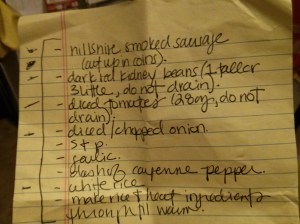 - hillshire smoked sausage
(cut up in coins).
- dark red kidney beans (1 taller
3 little, do not drain).
- diced tomatoes (28oz, do not
drain).
- diced/chopped onion.
- S + p.
- garlic.
- dash of cayenne pepper.
- white rice.
- make rice + heat ingredients
through til warm.